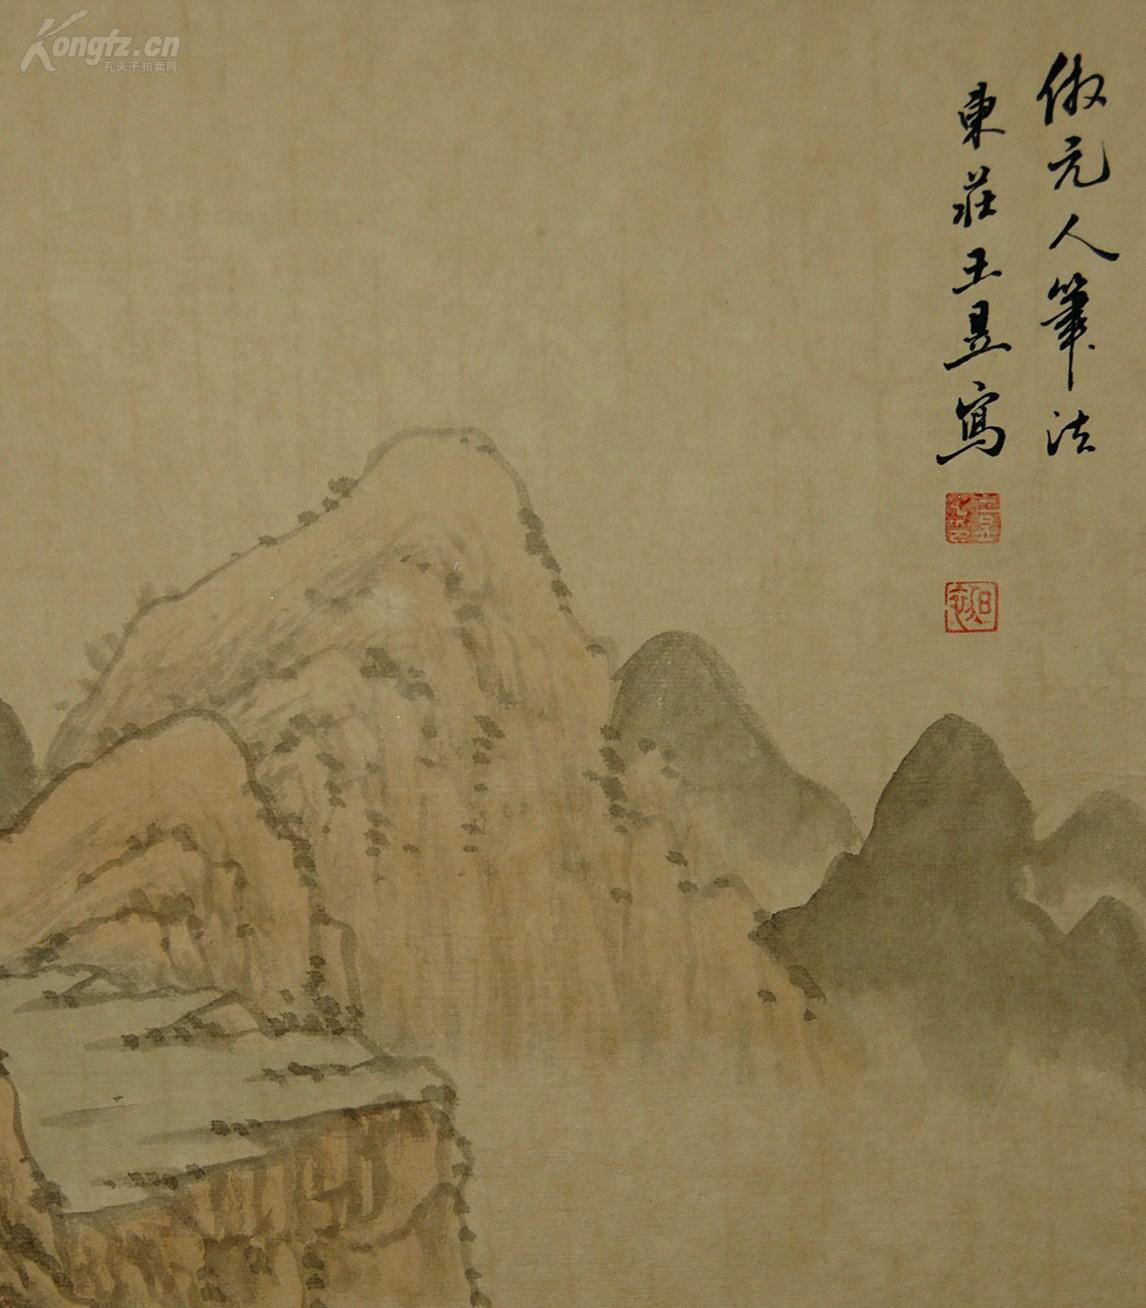 Kongfz.cn
孔夫子拍卖网
倣元人筆法
東莊王昱寫